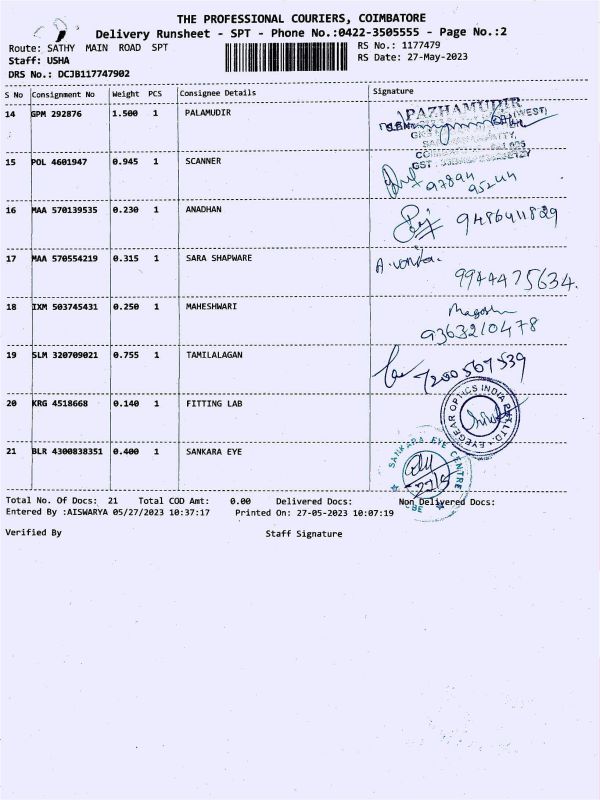 THE PROFESSIONAL COURIERS, COIMBATORE
Delivery Runsheet - SPT - Phone No.:0422-3505555 - Page No.:2
Route: SATHY MAIN ROAD SPT RS No.: 1177479
Staff: USHA RS Date: 27-May-2023
DRS No.: DCJB117747902
S No Consignment No Weight PCS Consignee Details Signature
14 GPM 292876 1.500 1 PALAMUDIR
PAZHAMUDIR
15 POL 4601947 0.945 1 SCANNER
97894
95244
16 MAA 570139535 0.230 1 ANADHAN 9486411829
17 MAA 570554219 0.315 1 SARA SHAPWARE
9944475634.
18 IXM 503745431 0.250 1 MAHESHWARI
9363210478
19 SLM 320709021 0.755 1 TAMILALAGAN 7200567539
20 KRG 4518668 0.140 1 FITTING LAB
EYEGEAR OPTICS INDIA PVT. LTD.
21 BLR 4300838351 0.400 1 SANKARA EYE
SANKARA EYE CENTRE
CBE
27/5
Total No. Of Docs: 21 Total COD Amt: 0.00 Delivered Docs: Non Delivered Docs:
Entered By :AISWARYA 05/27/2023 10:37:17 Printed On: 27-05-2023 10:07:19
Verified By Staff Signature